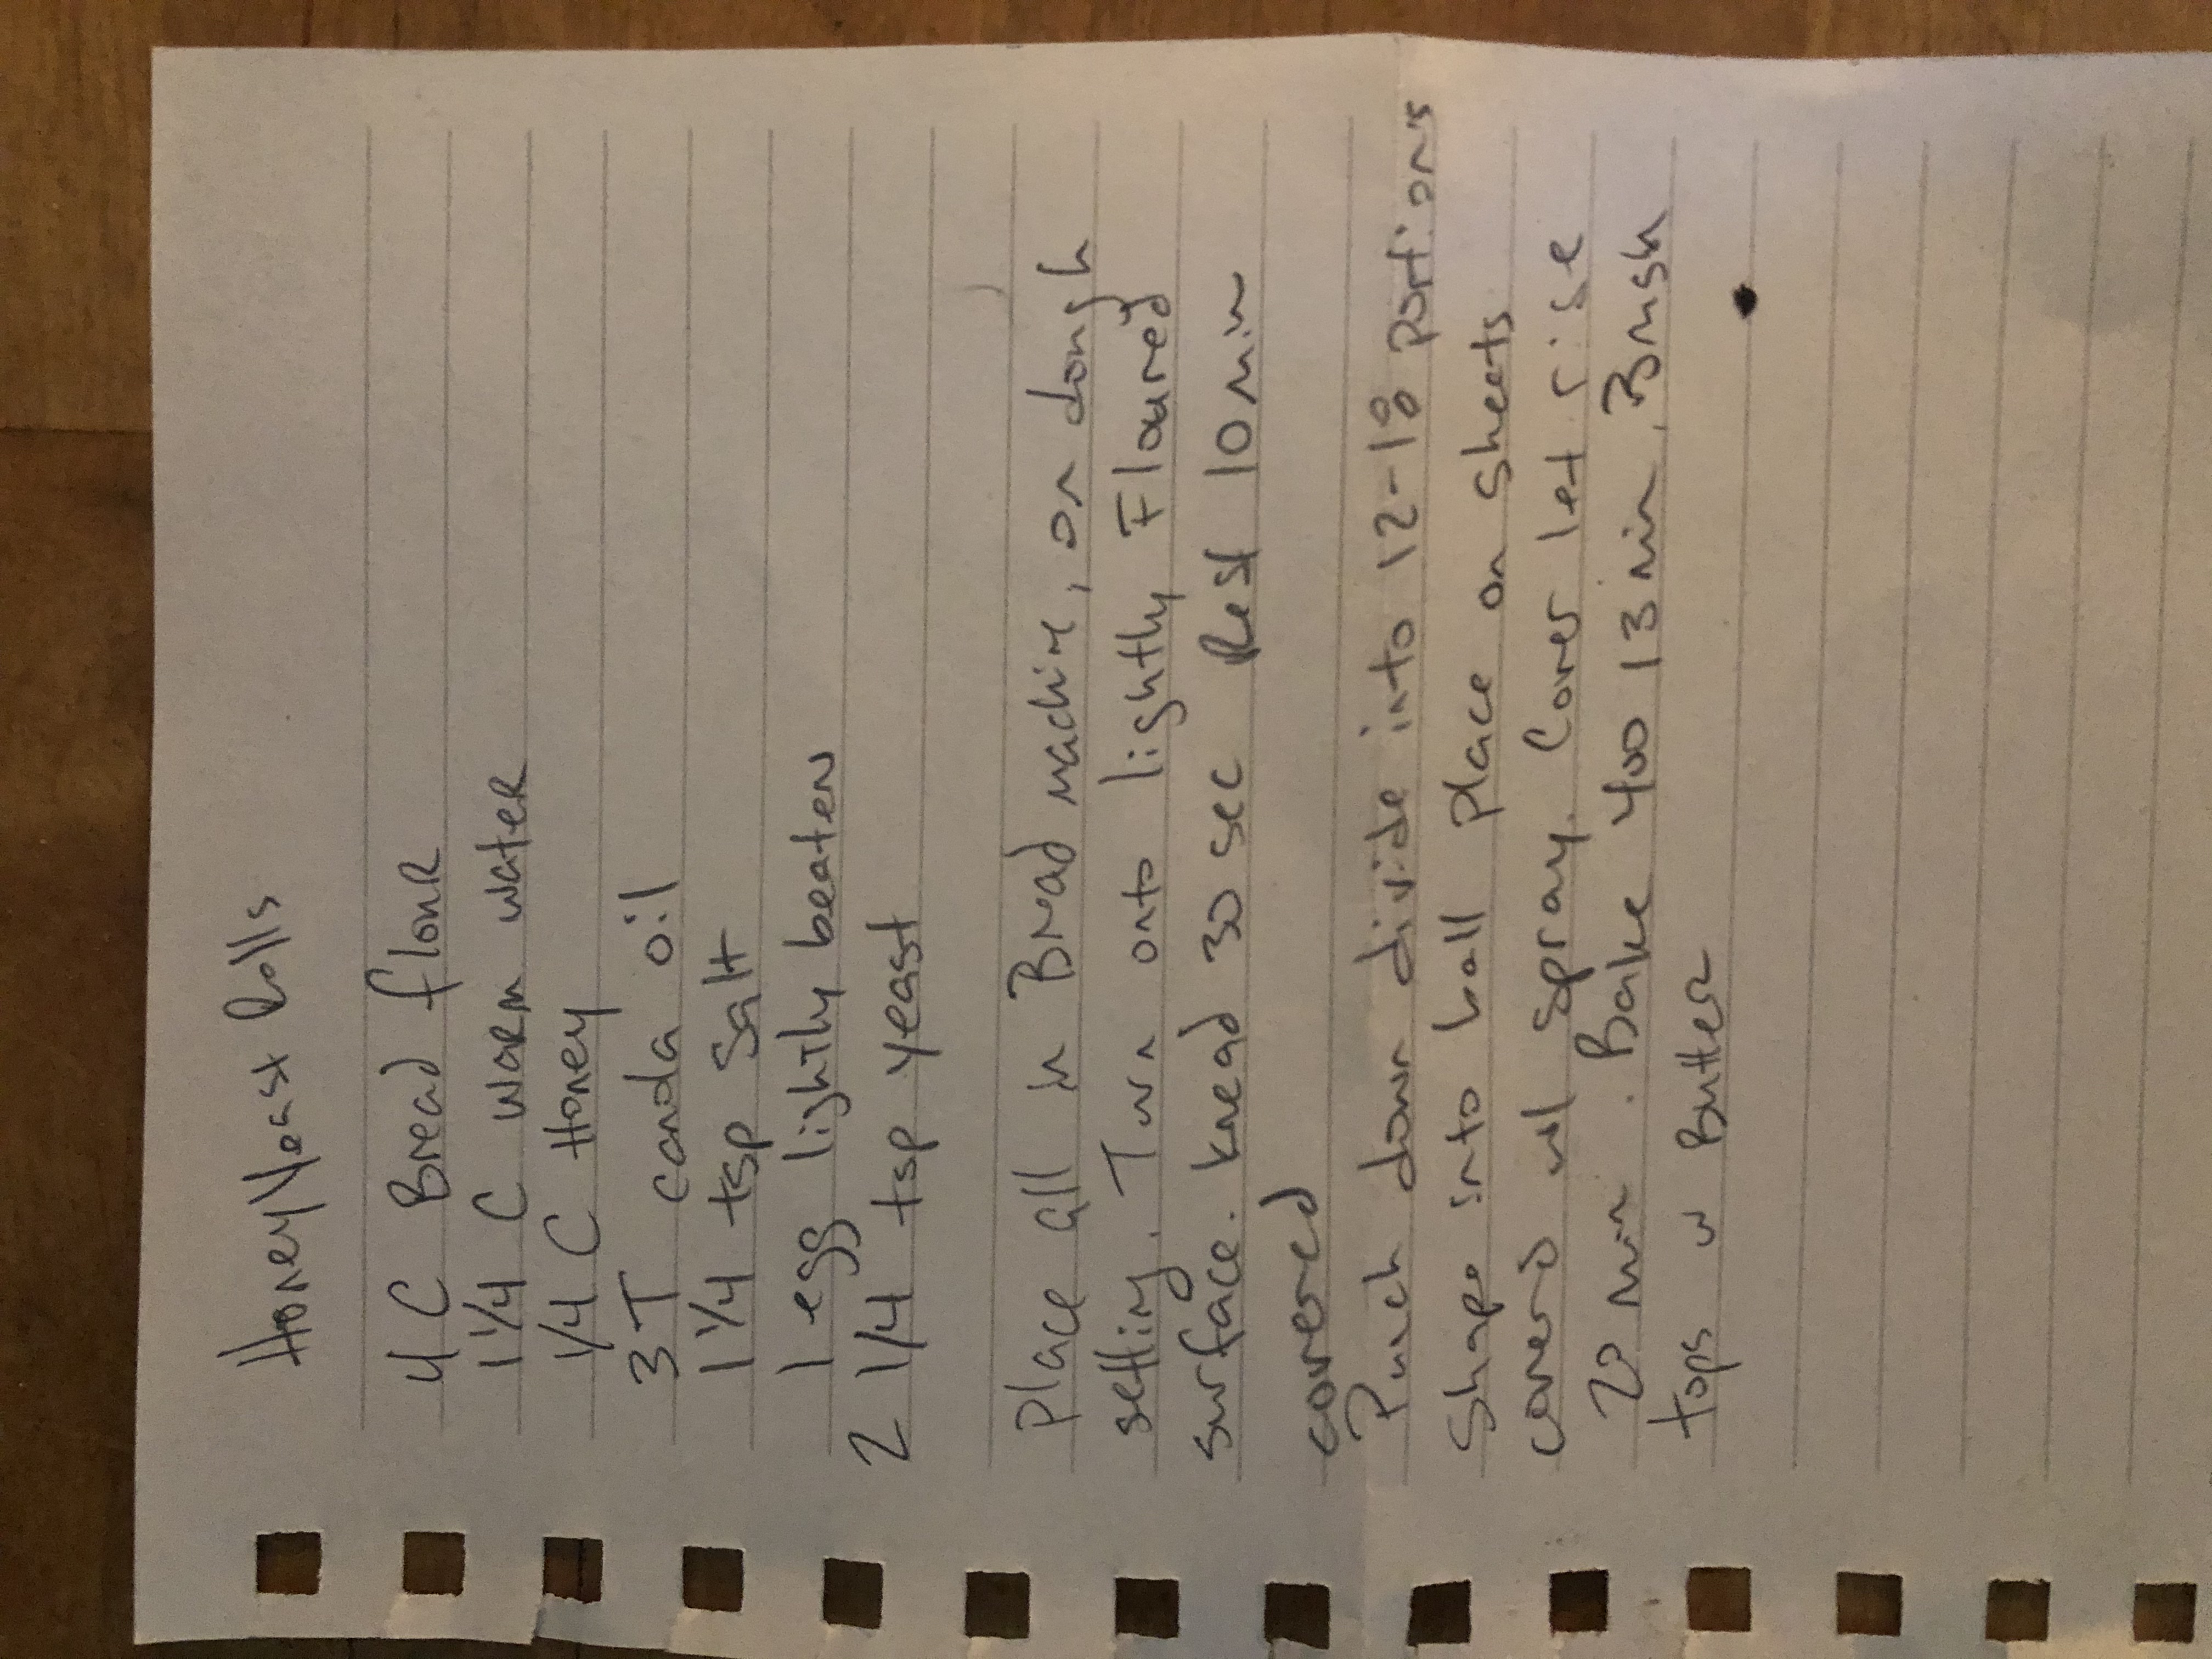 Honey Yeast Rolls
4 C Bread flour
1 1/4 C warm water
1/4 C Honey
3 T canola oil
1 1/4 tsp Salt
1 egg lightly beaten
2 1/4 tsp yeast
Place all in Bread machine, on dough
setting. Turn onto lightly Floured
surface. knead 30 sec Rest 10 min
covered
Punch down divide into 12-18 portions
Shape into ball Place on sheets
coverd w/ spray. Cover let rise
20 min. Bake 400 13 min, Brush
tops w Butter